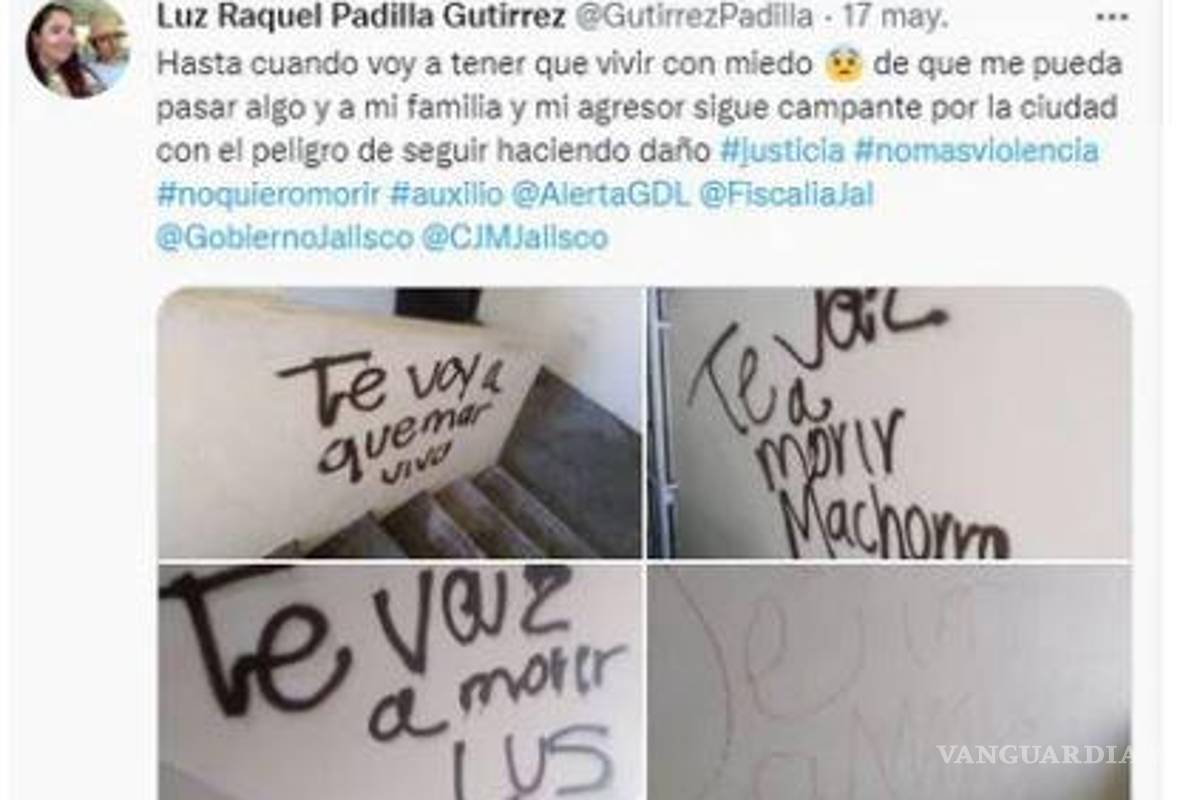 Luz Raquel Padilla Gutirrez @GutirrezPadilla · 17 may.
Hasta cuando voy a tener que vivir con miedo 😟 de que me pueda
pasar algo y a mi familia y mi agresor sigue campante por la ciudad
con el peligro de seguir haciendo daño #justicia #nomasviolencia
#noquieromorir #auxilio @AlertaGDL @FiscaliaJal
@GobiernoJalisco @CJMJalisco
Te voy a
quemar
viva
Te vaiz
a
morir
Machorra
Te vaiz
a morir
LUS
Te
a
VANGUARDIA